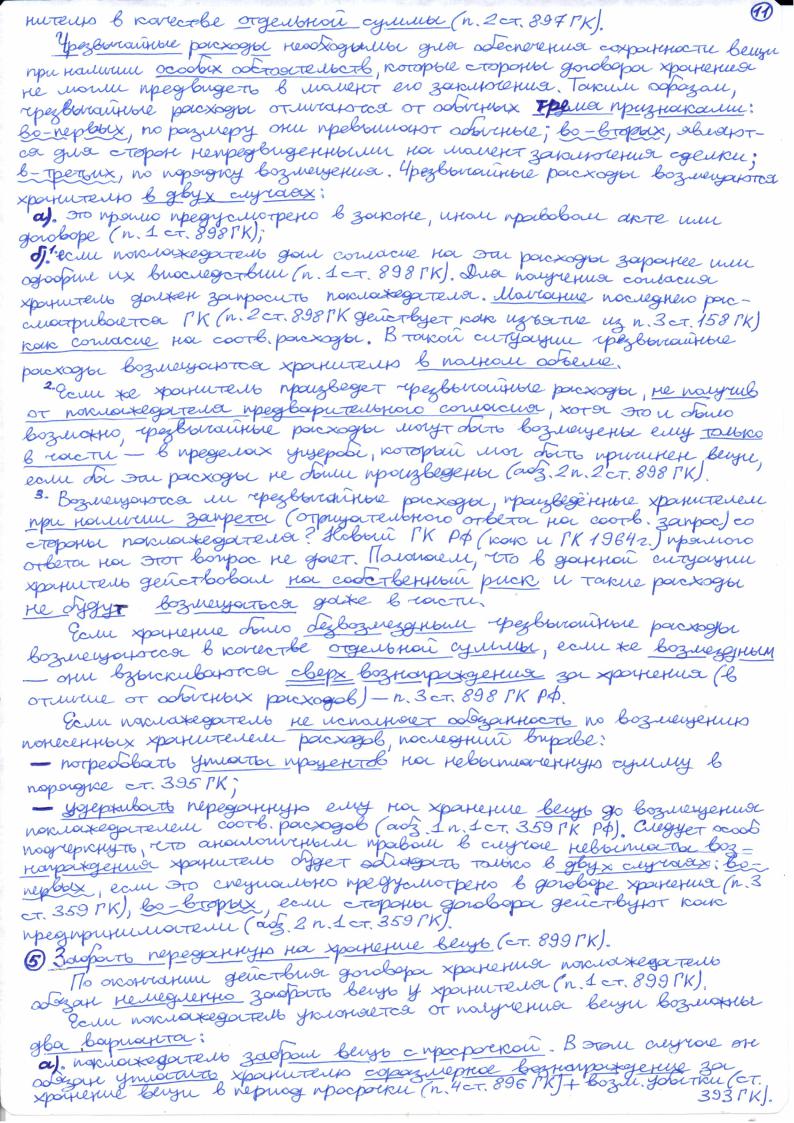 11
нителю в качестве отдельной суммы (п. 2 ст. 897 ГК).
Чрезвычайные расходы необходимы для обеспечения сохранности вещи
при наличии особых обстоятельств, которые стороны договора хранения
не могли предвидеть в момент его заключения. Таким образом,
чрезвычайные расходы отличаются от обычных тремя признаками:
во-первых, по размеру они превышают обычные; во-вторых, являют-
ся для сторон непредвиденными на момент заключения сделки;
в-третьих, по порядку возмещения. Чрезвычайные расходы возмещаются
хранителю в двух случаях:
а). это прямо предусмотрено в законе, ином правовом акте или
договоре (п. 1 ст. 898 ГК);
б). 1. если поклажедатель дал согласие на эти расходы заранее или
одобрил их впоследствии (п. 1 ст. 898 ГК). Для получения согласия
хранитель должен запросить поклажедателя. Молчание последнего рас-
сматривается ГК (п. 2 ст. 898 ГК действует как изъятие из п. 3 ст. 158 ГК)
как согласие на соотв. расходы. В такой ситуации чрезвычайные
расходы возмещаются хранителю в полном объеме.
2. Если же хранитель произведет чрезвычайные расходы, не получив
от поклажедателя предварительного согласия, хотя это и было
возможно, чрезвычайные расходы могут быть возмещены ему только
в части — в пределах ущерба, который мог быть причинен вещи,
если бы эти расходы не были произведены (абз. 2 п. 2 ст. 898 ГК).
3. Возмещаются ли чрезвычайные расходы, произведённые хранителем
при наличии запрета (отрицательного ответа на соотв. запрос) со
стороны поклажедателя? Новый ГК РФ (как и ГК 1964 г.) прямого
ответа на этот вопрос не дает. Полагаем, что в данной ситуации
хранитель действовал на собственный риск и такие расходы
не будут возмещаться даже в части.
Если хранение было безвозмездным чрезвычайные расходы
возмещаются в качестве отдельной суммы, если же возмездным
— они взыскиваются сверх вознаграждения за хранения (в
отличие от обычных расходов) — п. 3 ст. 898 ГК РФ.
Если поклажедатель не исполняет обязанность по возмещению
понесенных хранителем расходов, последний вправе:
— потребовать уплаты процентов на невыплаченную сумму в
порядке ст. 395 ГК;
— удерживать переданную ему на хранение вещь до возмещения
поклажедателем соотв. расходов (абз. 1 п. 1 ст. 359 ГК РФ). Следует особо
подчеркнуть, что аналогичным правом в случае невыплаты воз-
награждения хранитель будет обладать только в двух случаях: во-
первых, если это специально предусмотрено в договоре хранения (п. 3
ст. 359 ГК), во-вторых, если стороны договора действуют как
предприниматели (абз. 2 п. 1 ст. 359 ГК).
5 Забрать переданную на хранение вещь (ст. 899 ГК).
По окончании действия договора хранения поклажедатель
обязан немедленно забрать вещь у хранителя (п. 1 ст. 899 ГК).
Если поклажедатель уклоняется от получения вещи возможны
два варианта:
а). поклажедатель забрал вещь с просрочкой. В этом случае он
обязан уплатить хранителю соразмерное вознаграждение за
хранение вещи в период просрочки (п. 4 ст. 896 ГК) + возм. убытки (ст.
393 ГК).